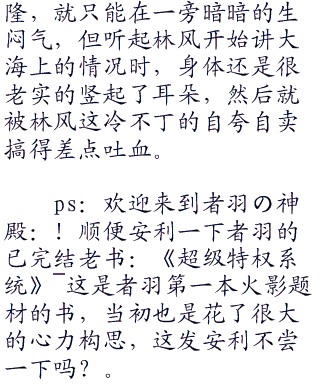 隆，就只能在一旁暗暗的生
闷气，但听起林风开始讲大
海上的情况时，身体还是很
老实的竖起了耳朵，然后就
被林风这冷不丁的自夸自卖
搞得差点吐血。
ps：欢迎来到者羽の神
殿：！顺便安利一下者羽的
已完结老书：《超级特权系
统》¯这是者羽第一本火影题
材的书，当初也是花了很大
的心力构思，这发安利不尝
一下吗？。